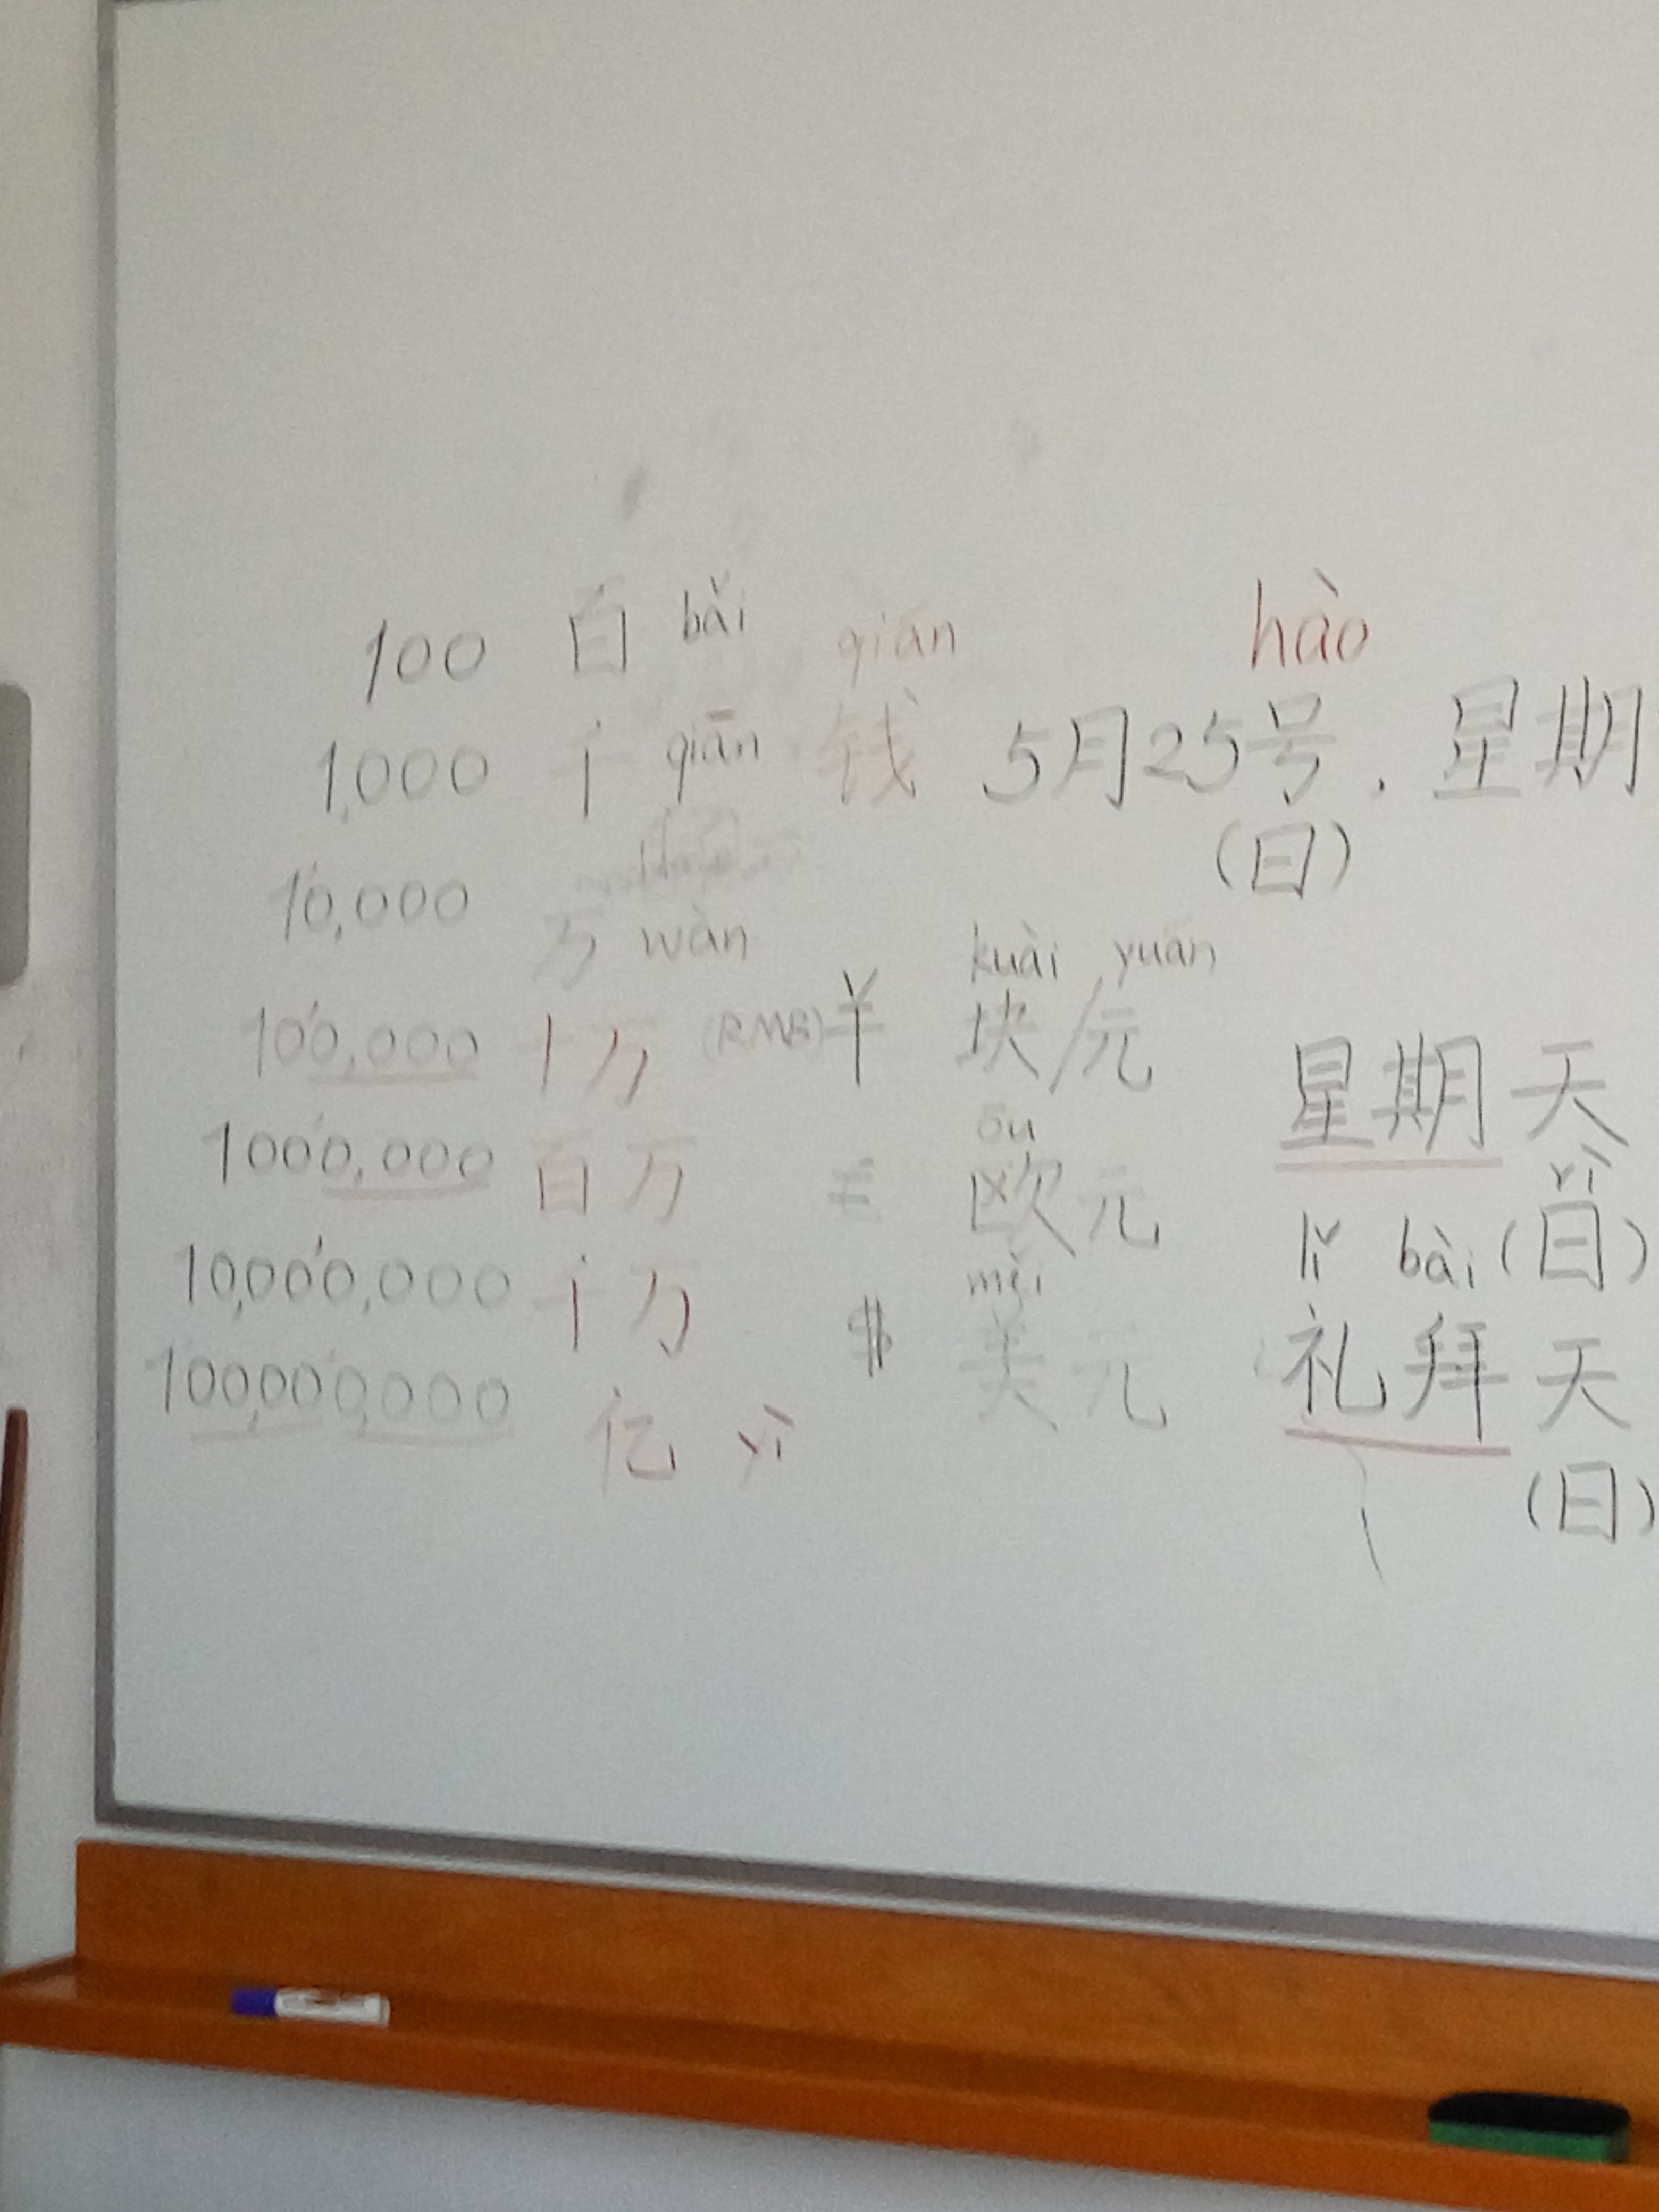 100 百 bǎi
1,000 千 qiān
10,000 万 wàn
100,000 十万
1000,000 百万
10,000,000 千万
100,000,000 亿 yì
qián
钱
hào
5月25号. 星期
(日)
kuài yuán
(RMB) ¥ 块/元
ōu
€ 欧元
měi
$ 美元
星期天
rì
(日)
lǐ bài
礼拜天
(日)